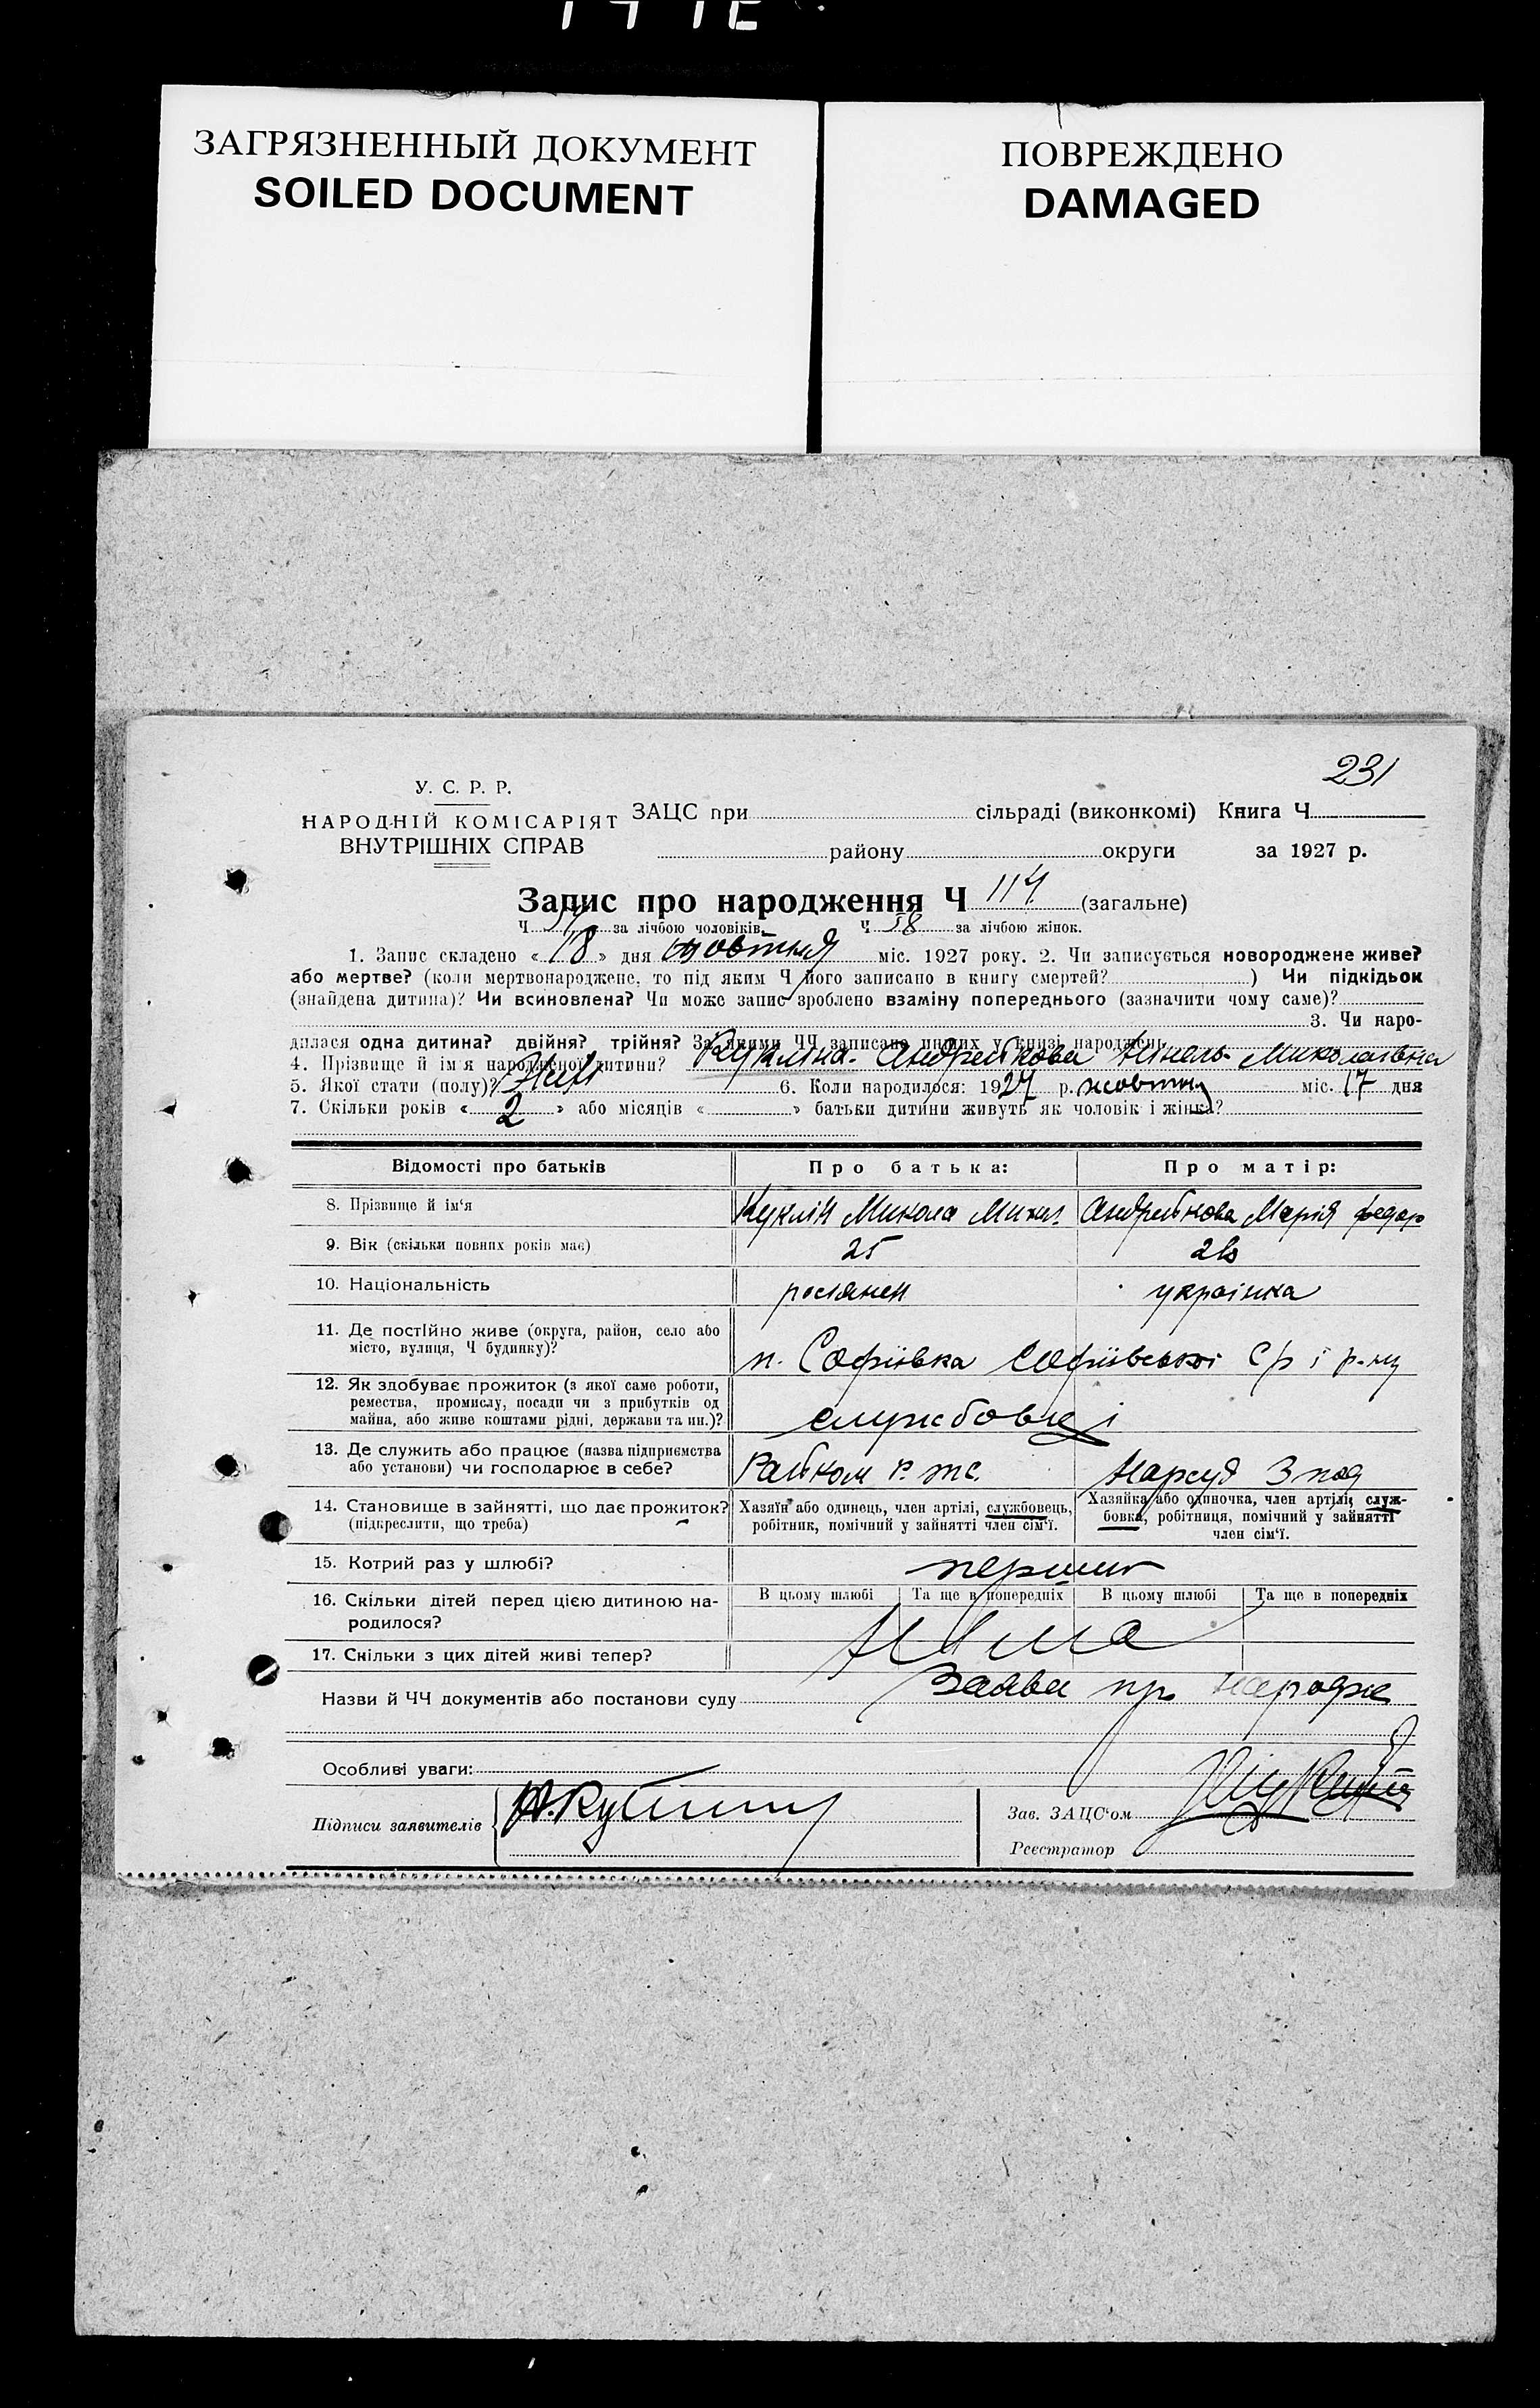 ЗАГРЯЗНЕННЫЙ ДОКУМЕНТ
SOILED DOCUMENT
ПОВРЕЖДЕНО
DAMAGED
231
У. С. Р. Р.
НАРОДНІЙ КОМІСАРІЯТ
ВНУТРІШНІХ СПРАВ
ЗАЦС при сільраді (виконкомі) Книга Ч
району округи за 1927 р.
Запис про народження Ч 114 (загальне)
Ч за лічбою чоловіків. Ч 58 за лічбою жінок.
1. Запис складено « 18 » дня жовтня міс. 1927 року. 2. Чи записується новороджене живе?
або мертве? (коли мертвонароджене, то під яким Ч його записано в книгу смертей? ) Чи підкідьок
(знайдена дитина)? Чи всиновлена? Чи може запис зроблено взаміну попереднього (зазначити чому саме)?
3. Чи наро-
дилася одна дитина? двійня? трійня? За якими ЧЧ записано инших у книзі народжень
4. Прізвище й ім'я народженої дитини? Кукліна-Андрейкова Нінель Миколаївна
5. Якої стати (полу)? Жін 6. Коли народилося: 1927 р. жовтня міс. 17 дня
7. Скільки років « 2 » або місяців « » батьки дитини живуть як чоловік і жінка?
Відомості про батьків Про батька: Про матір:
8. Прізвище й ім‘я Куклін Микола Михил. Андрейкова Марія федор
9. Вік (скільки повних років має) 25
10. Національність росіянен українка
11. Де постійно живе (округа, район, село або
місто, вулиця, Ч будинку)? п. Софіївка Софіївської с/р і р-ну
12. Як здобуває прожиток (з якої саме роботи,
ремества, промислу, посади чи з прибутків од
майна, або живе коштами рідні, держави та ин.)? службовці
13. Де служить або працює (назва підприємства
або установи) чи господарює в себе? Райком Нарсуд
14. Становище в зайнятті, що дає прожиток?
(підкреслити, що треба)
Хазяїн або одинець, член артілі, службовець,
робітник, помічний у зайнятті член сім‘ї.
Хазяйка або одиночка, член артілі, служ-
бовка, робітниця, помічний у зайнятті
член сім‘ї.
15. Котрий раз у шлюбі? перший
16. Скільки дітей перед цією дитиною на-
родилося?
В цьому шлюбі Та ще в попередніх В цьому шлюбі Та ще в попередніх
Нема
17. Скільки з цих дітей живі тепер?
Назви й ЧЧ документів або постанови суду Заява про народже
Особливі уваги:
Підписи заявителів
Зав. ЗАЦС‘ом
Реєстратор